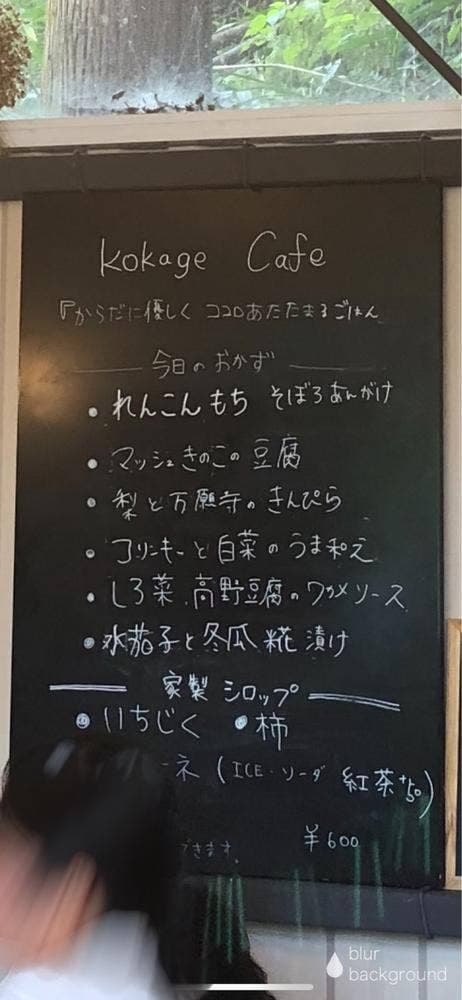 kokage Cafe
『からだに優しく ココロあたたまるごはん
今日のおかず
• れんこんもち そぼろあんがけ
• マッシュきのこの豆腐
• 梨と万願寺のきんぴら
• コリンキーと白菜のうま和え
• しろ菜、高野豆腐のワカメソース
• 水茄子と冬瓜 糀漬け
家製 シロップ
• いちじく • 柿
ネ (ICE・ソーダ 紅茶+50)
できます。 ¥600
blur
background